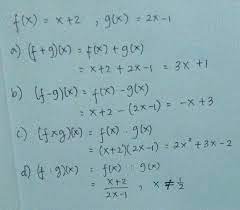 f(x) = x+2 , g(x) = 2x-1
a) (f+g)(x) = f(x) + g(x)
= x+2 + 2x-1 = 3x+1
b) (f-g)(x) = f(x) - g(x)
= x+2 - (2x-1) = -x+3
c) (f×g)(x) = f(x) · g(x)
= (x+2)(2x-1) = 2x²+3x-2
d) (f : g)(x) = f(x) : g(x)
= x+2/2x-1 , x ≠ 1/2